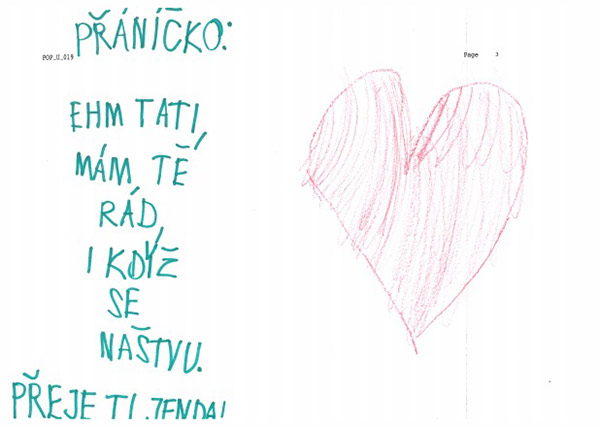 PŘÁNÍČKO:
POP_U_019
Page 3
EHM TATI,
MÁM TĚ
RÁD,
I KDYŽ
SE
NAŠTVU.
PŘEJE TI JENDA!